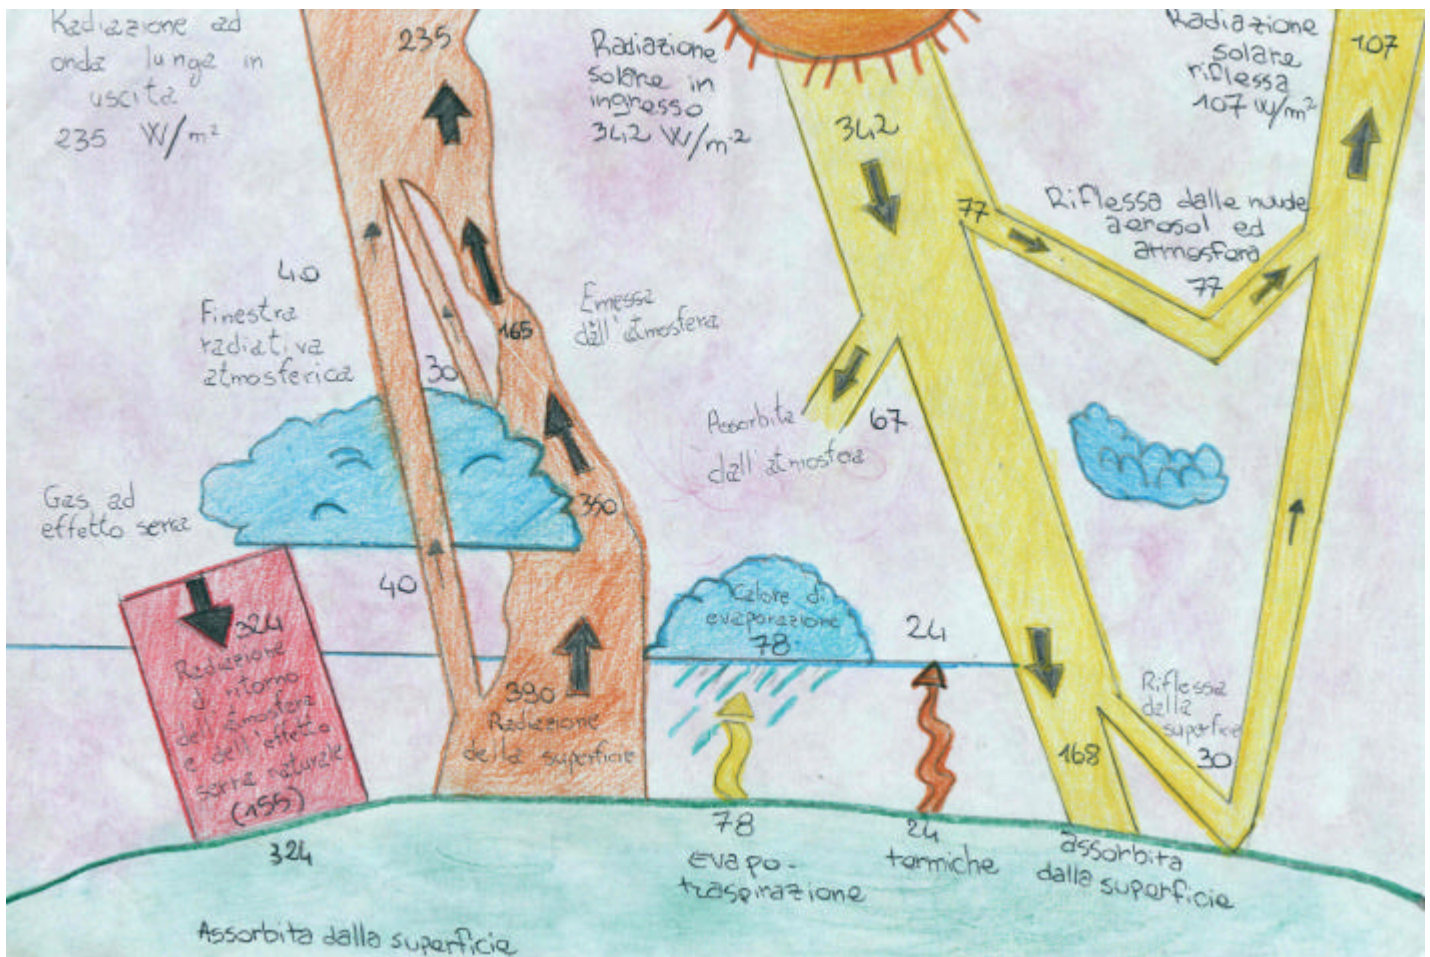 Radiazione ad
onda lunga in
uscita
235 W/m²
235
Radiazione
solare in
ingresso
342 W/m²
342
Radiazione
solare
riflessa
107 W/m²
107
77
Riflessa dalle nuvole
aerosol ed
atmosfera
77
40
Finestra
radiativa
atmosferica
165
Emessa
dall'atmosfera
30
Assorbita
dall'atmosfera
67
Gas ad
effetto serra
350
40
324
Radiazione
di ritorno
dell'atmosfera
e dell'effetto
serra naturale
(155)
324
390
Radiazione
della superficie
Calore di
evaporazione
78
24
Riflessa
dalla
superficie
30
168
78
evapo-
traspirazione
24
termiche
assorbita
dalla superficie
Assorbita dalla superficie